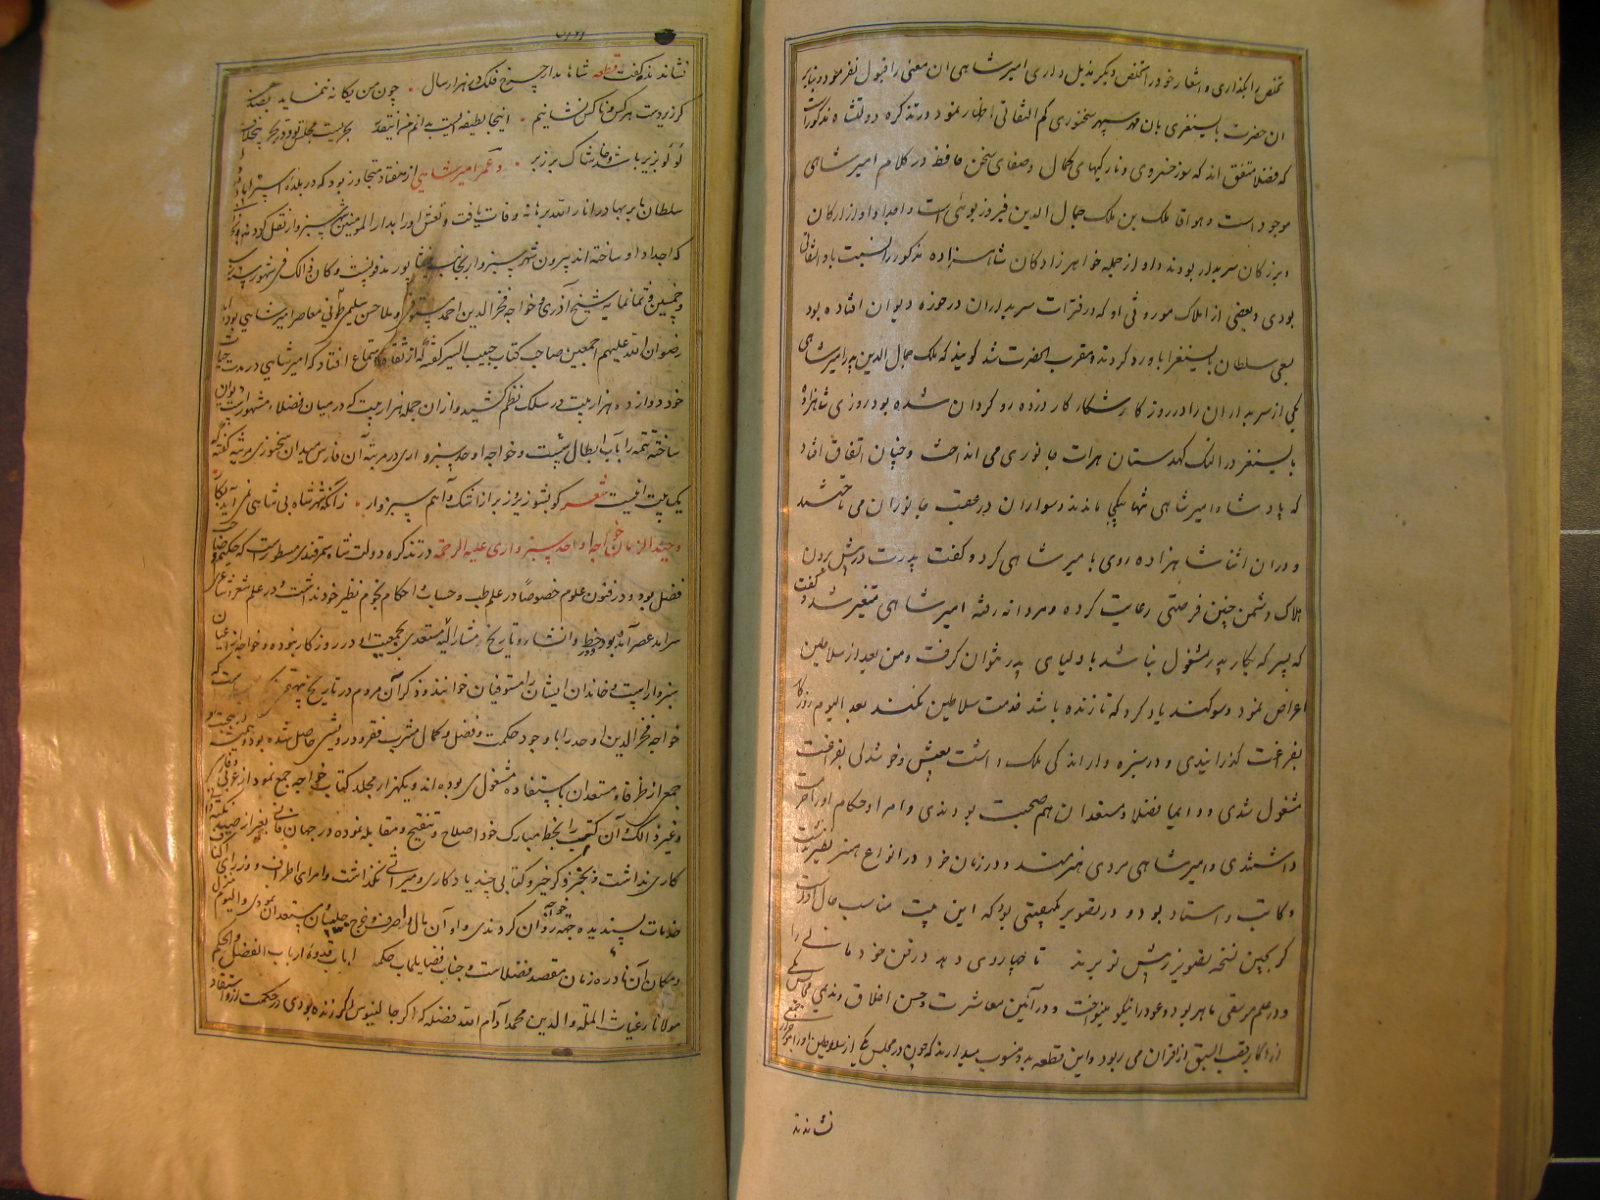 تخلص را بگذاری و اشعار خود را تخلص دیگر امیر شاهی این معنی را قبول نفرمود و بنابر
ان حضرت بایسنغری بان مهر سپهر سخنوری کم التفاتی اظهار نمود و در تذکره دولتشاه مذکور است
که فضلا متفق اند که سوز خسروی و نازکیهای کمال و صفای سخن حافظ در کلام امیر شاهی
موجود است و هو اقا ملک بن ملک جمال الدین فیروزکوئی است و اجداد او از ارکان
سربدار بودند و او از جمله خواهر زادگان شاهزاده مذکور را نسبت باو التفاتی
بودی و بعضی از املاک موروثی او که در فترات سربداران در حوزه دیوان افتاده بود
بسعی سلطان بایسنغر با و رد کردند و مقرب الحضرت شد گویند که ملک جمال الدین پدر امیر شاهی
یکی از سربداران را در روز شکار کارد زده رو گردان شده بود روزی شاهزاده
بایسنغر در النک کهدستان هرات جانوری می انداخت و چنان اتفاق افتاد
که پادشاه و امیر شاهی تنها یکجا ماندند و سواران در عقب جانوران می تاختند
و دران اثنا شاهزاده روی با میر شاهی کرد و گفت پدرت در بردن
هلاک دشمن چنین فرصتی رعایت کرده و مردانه رفته امیر شاهی متغیر شد و گفت
که پسر که بکار پدر مشغول نباشد با و لیای پدر نتوان گرفت و من بعد از سلاطین
اعراض نمود و سوگند یاد کرد که تا زنده باشد خدمت سلاطین نکند بعد الیوم روزگار
بفراغت گذرانیدی و در سبزوار اندکی ملک داشت بعیش و خوشدلی بفراغت
مشغول شدی و دایما فضلا و مستعدان هم صحبت بودندی و امرا و حکام او را حرمت
داشتندی و امیر شاهی مردی هنرمند و در زمان خود در انواع هنر نظیر نداشت
و کاتب و استاد بود و در تصویر بود که این بیت مناسب حال اوست
گر بچین نسخه تصویر ز نقش تو برند تا چها روی دهد در فن خود مانی را
و در علم موسیقی ماهر بود و عود را نیکو مینواخت و در آئین معاشرت و حسن اخلاق و ندیمی مجالس
از اکابر قصب السبق از اقران می ربود و این قطعه بدو منسوب میدارند که چون در مجلس یکی از سلاطین او را
نشاندند
نشاندند گفت قطعه شاها مدار چرخ فلک در هزار سال چون من یکانه ننماید بصد هنر
گر زیر دست هر کس و ناکس نشانیم اینجا لطیفه ایست بدانم من اینقدر بحریست مجلس تو و در بحر بیخلاف
لؤلؤ بزیر باشد و خاشاک بر زبر و عمر امیر شاهی از هفتاد متجاوز بود که در بلده استراباد
سلطان بابر بهادر انار الله برهانه وفات یافت و نعش او را بدار المومنین شهر سبزوار نقل کردند
که اجداد او ساخته اند بیرون شهر سبزوار بجانب نشابور مدفونست و کان ذالک فی شهور
و خمسین و ثمانمایه شیخ آذری و خواجه فخر الدین اوحد مستوفی و ملا حسن سلیمی تونی معاصر امیر شاهی بوده اند
رضوان الله علیهم اجمعین صاحب کتاب حبیب السیر گفته که از ثقات استماع افتاد که امیر شاهی در مدت حیات
خود دوازده هزار بیت در سلک نظم کشید و از ان جمله هزار بیت که در میان فضلا مشهور است دیوان
ساخته تتمه را بآب ابطال بشست و خواجه اوحد سبزواری در مرثیه آن فارس میدان سخنوری مرثیه گفته که
یک بیت اینست شعر کو بشو زیر و زبر از اشک و آهم سبزوار زانکه شهر شاه بی شاهی نمی آید بکار
وحید الزمان خواجه اوحد سبزواری علیه الرحمة در تذکره دولت شاه سمرقندی مسطور است که حکیم و صاحب
فضل بود و در فنون علوم خصوصا در علم طب و حساب و احکام نجوم نظیر خود نداشت و در علم شعر و شاعری
سرامد عصر آمده بود و خط و انشا و تاریخ مشار الیه مستعدی بجمعیت او در روزگار نبوده و خواجه از اعیان
سبزوار است و خاندان ایشان را مستوفیان خوانند و ذکر آن مردم در تاریخ بیهق است که
خواجه فخر الدین اوحد را با وجود حکمت و فضل و کمال مشرب فقر و درویشی حاصل شده بود و همیشه
جمعی از ظرفا و مستعدان باستفاده مشغول می بوده اند و یکهزار مجلد کتاب خواجه جمع نمود از عربی و فارسی
و غیر ذالک و آن کتب را بخط مبارک خود اصلاح و تنقیح و مقابله نموده در جهان فانی بغیر از
کاری نداشت و بجز ذکر خیر و کتابی چند یادکاری و میراثی نگذاشت و امرای اطراف و وزرای
خدمات پسندیده جهة خواجه روان کردندی و او آن مال را صرف و خرج جلیسان و مستعدان نمودی و الیوم منزل
و مکان آن نادره زمان مقصد فضلاست و جناب فضایلماب حکمه ایاب قدوة ارباب الفضل و الحکم
مولانا غیاث الملة و الدین محمد ادام الله فضله که اگر جالینوس زنده بودی در حکمت از و استفاده